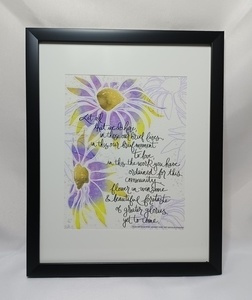 Let it
that we to have
in these our brief lives,
in this our brief moment
to love
in this the work you have
ordained for this
community
flower in winsome
& beautiful foretaste
of greater glories
yet to come.